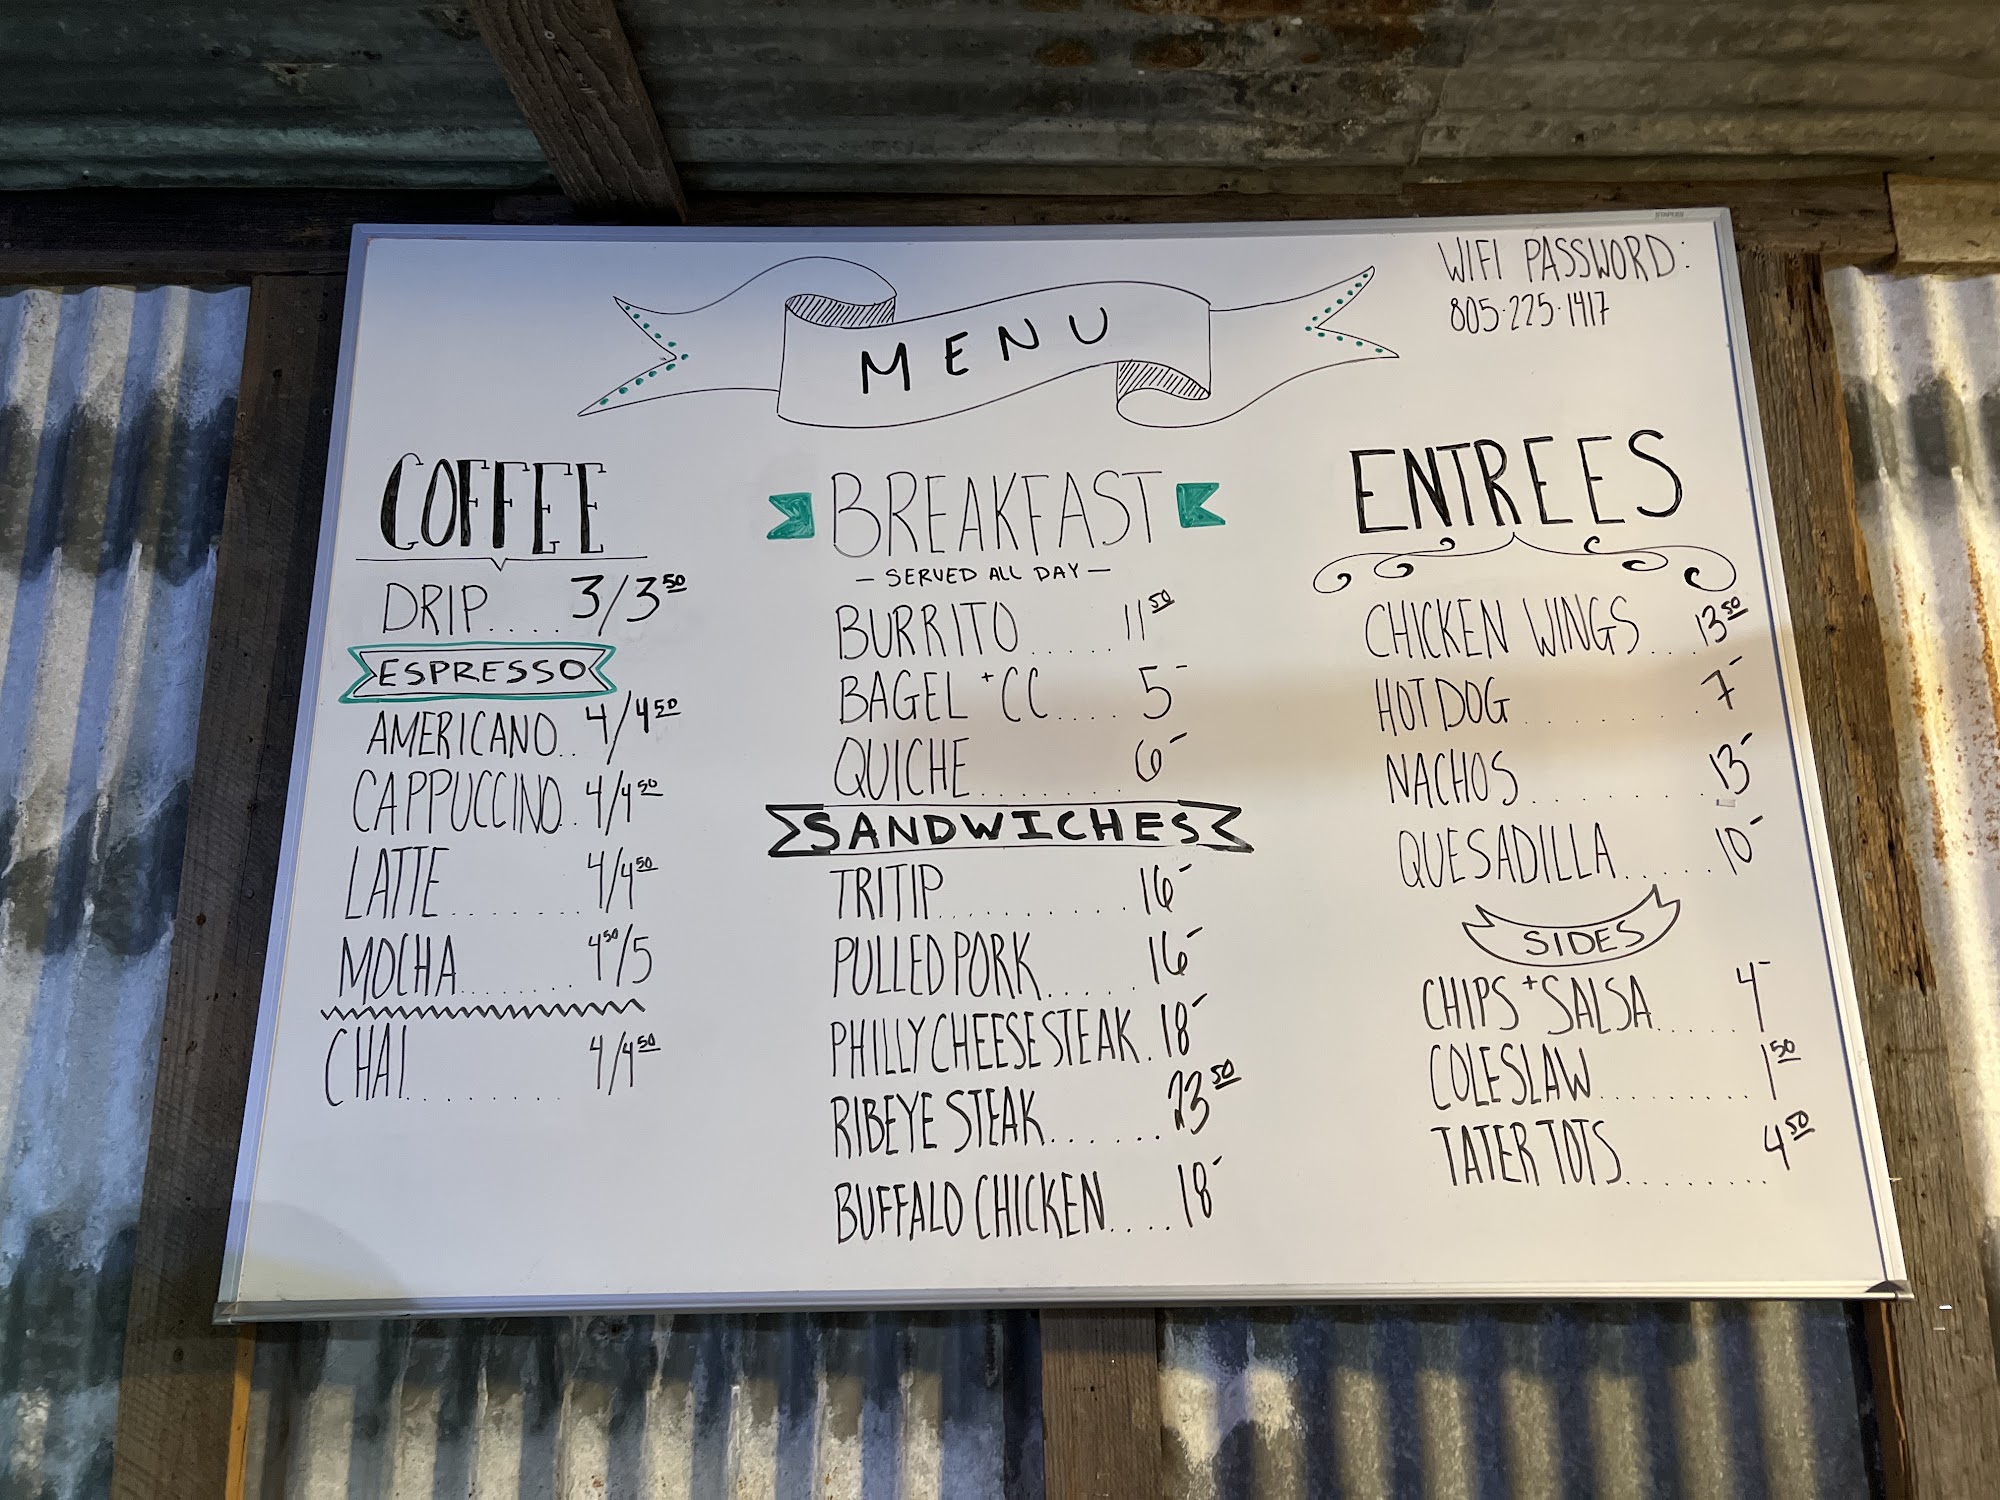 MENU
WIFI PASSWORD:
805-225-1417
COFFEE
DRIP.... 3/3.50
ESPRESSO
AMERICANO.. 4/4.50
CAPPUCCINO.. 4/4.50
LATTE........ 4/4.50
MOCHA........ 4.50/5
CHAI.......... 4/4.50
BREAKFAST
— SERVED ALL DAY —
BURRITO..... 11.50
BAGEL + CC.... 5-
QUICHE........ 6-
SANDWICHES
TRITIP.......... 16-
PULLED PORK..... 16-
PHILLY CHEESESTEAK. 18-
RIBEYE STEAK...... 23.50
BUFFALO CHICKEN.... 18-
ENTREES
CHICKEN WINGS... 13.50
HOT DOG......... 7-
NACHOS......... 13-
QUESADILLA..... 10-
SIDES
CHIPS + SALSA..... 4-
COLESLAW......... 1.50
TATER TOTS........ 4.50